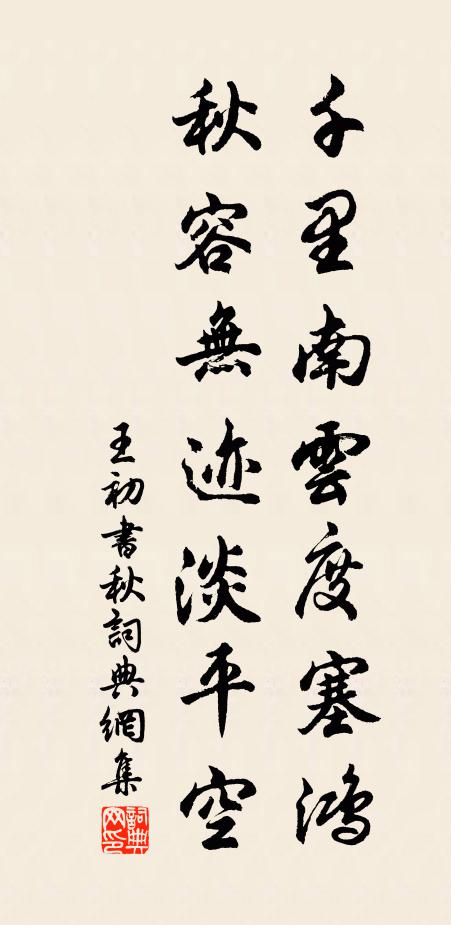 千里南雲度塞鴻
秋容無迹淡平空
王初書秋詞典網集
詞典网印